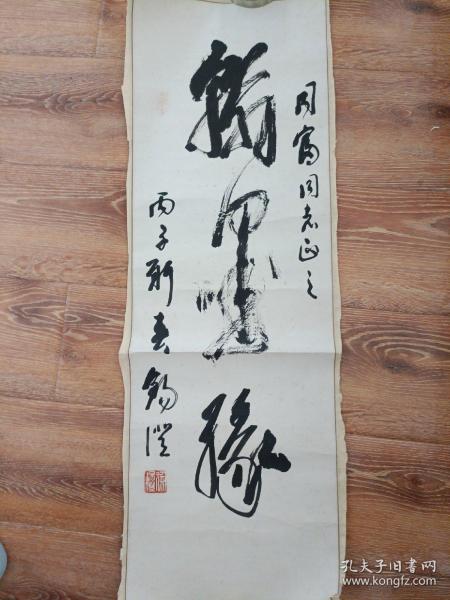 周富同志正之
翰墨缘
丙子新春锡澄
孔夫子旧书网
www.kongfz.com